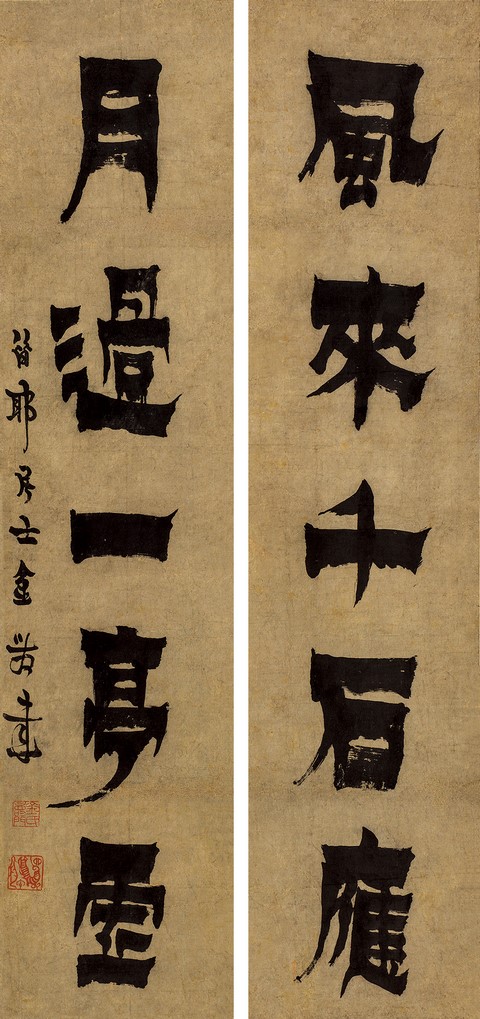 風來千石應
月過一亭
昔耶居士金農書